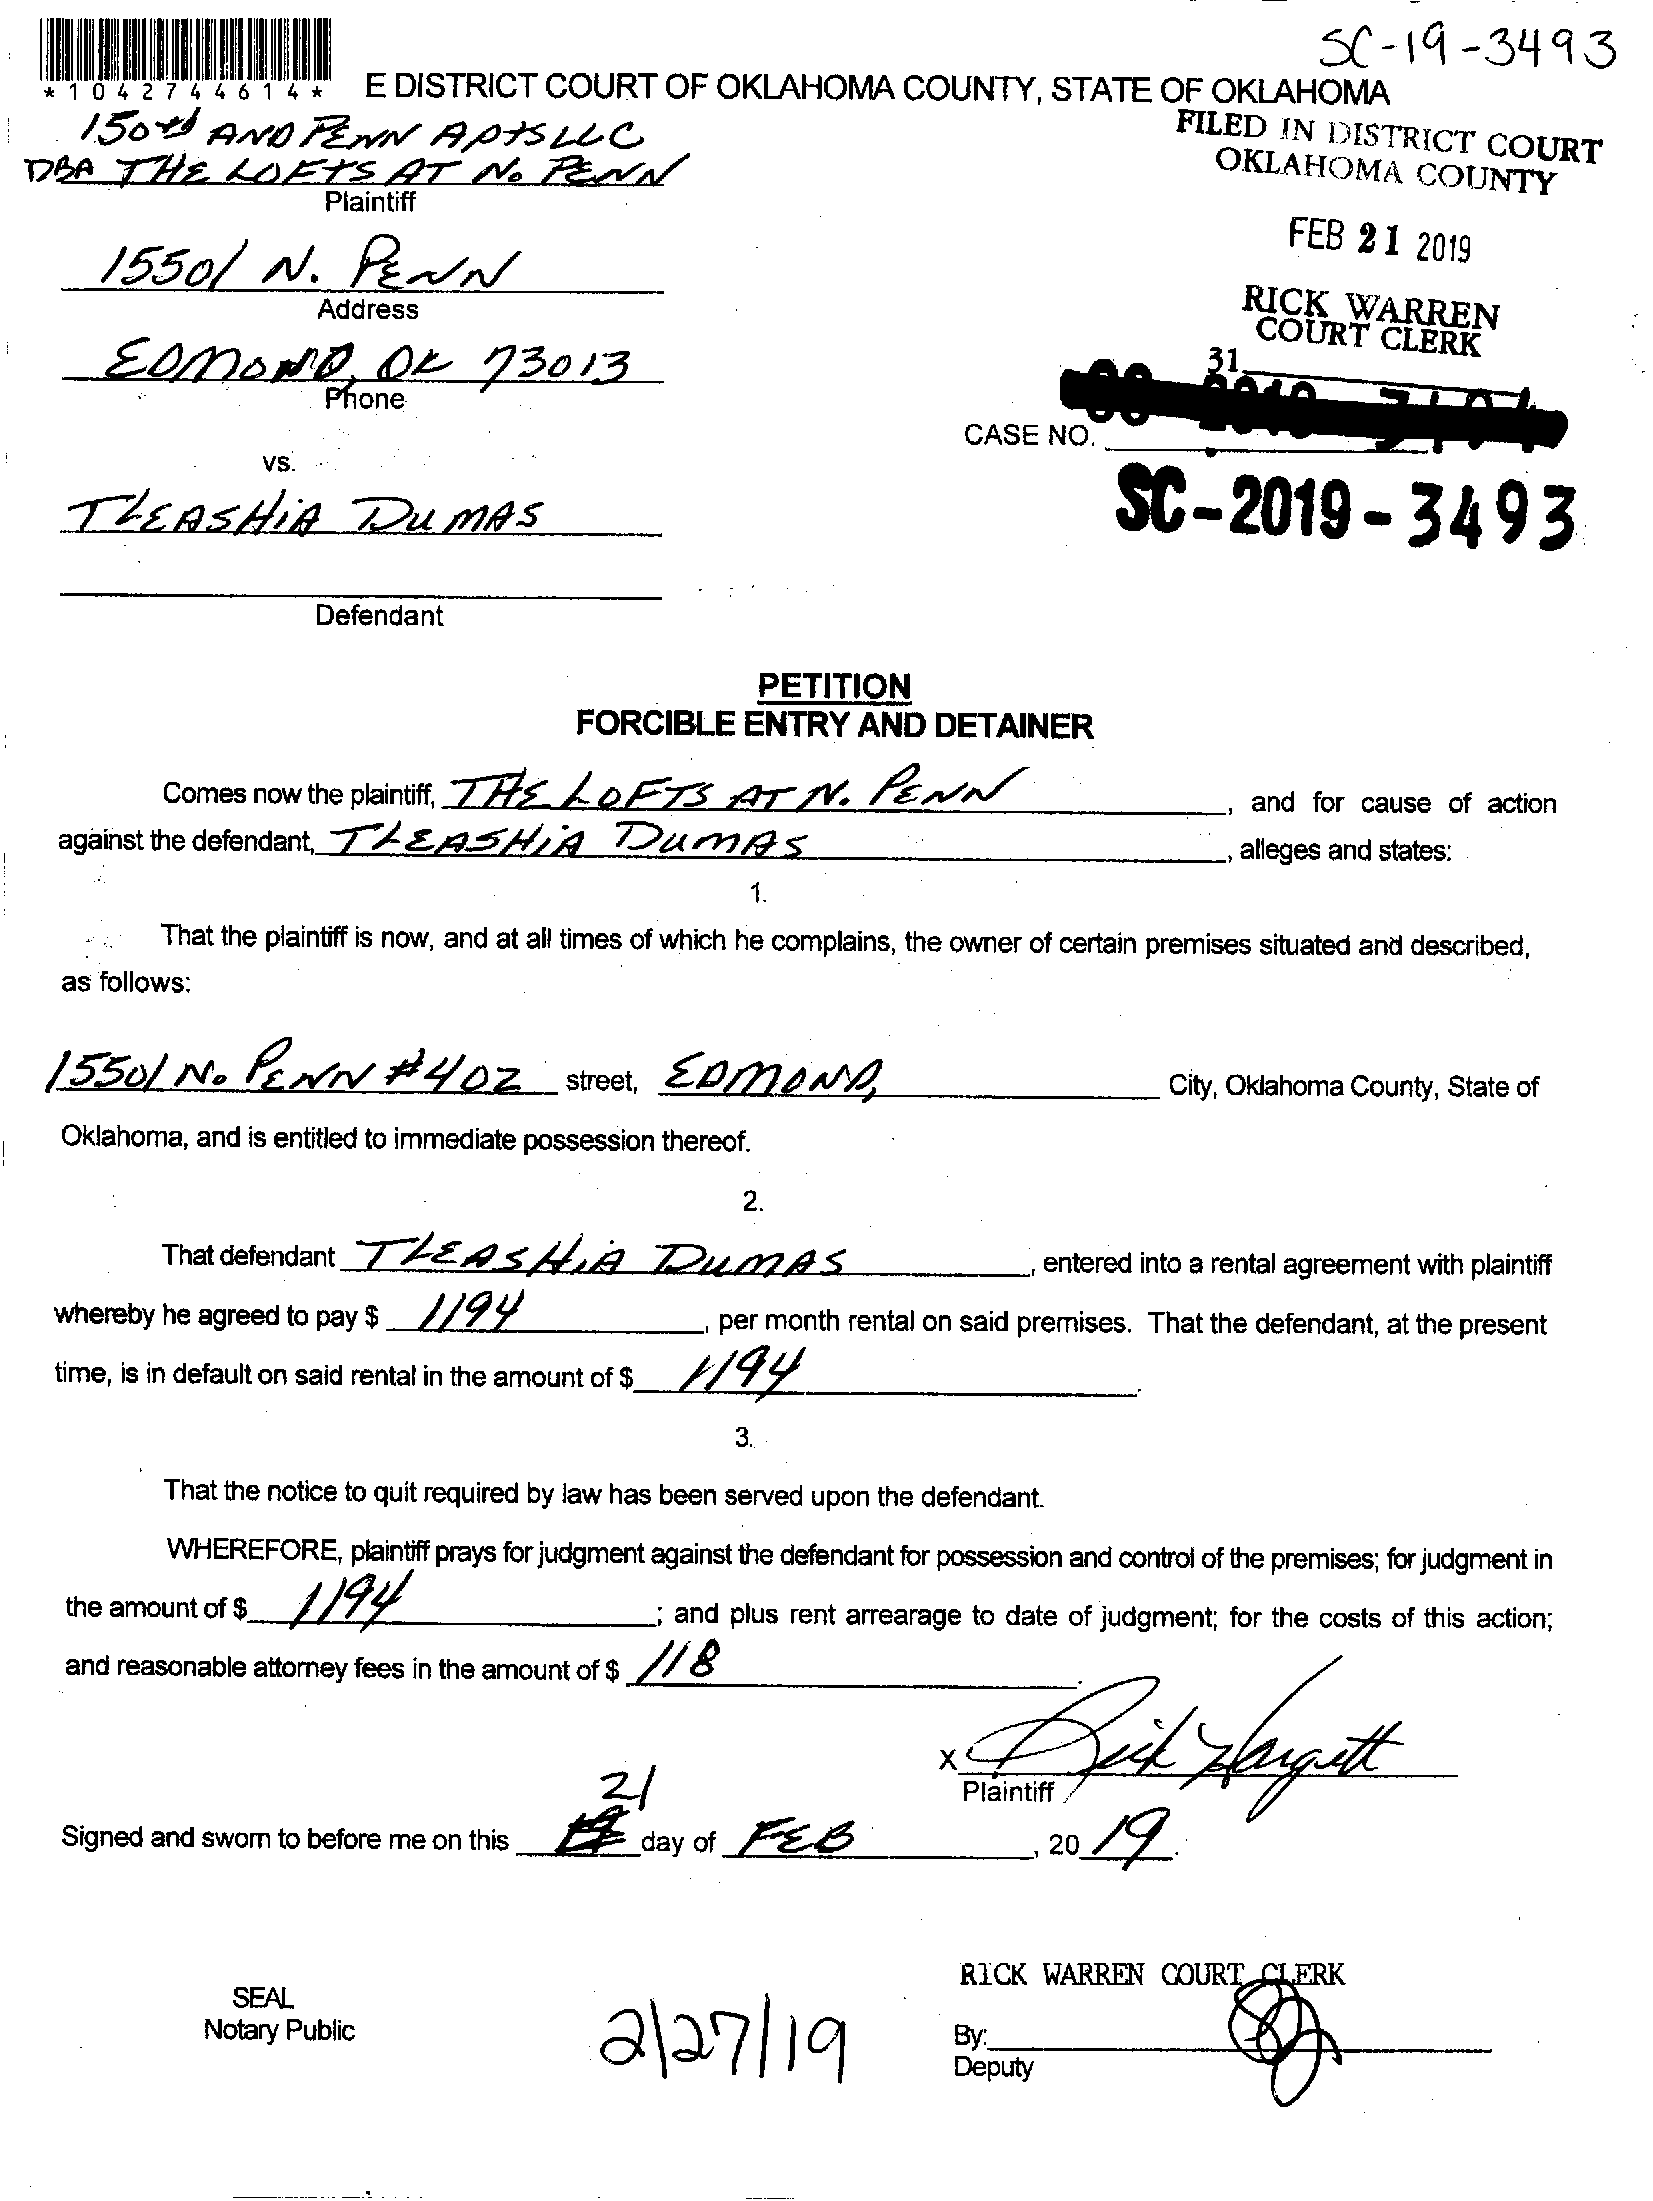 SC-19-3493
*1042744614*
E DISTRICT COURT OF OKLAHOMA COUNTY, STATE OF OKLAHOMA
150th AND PENN APTS LLC
DBA THE LOFTS AT N. PENN
Plaintiff
FILED IN DISTRICT COURT
OKLAHOMA COUNTY
FEB 21 2019
RICK WARREN
COURT CLERK
31
15501 N. PENN
Address
EDMOND, OK 73013
Phone
CASE NO.
vs.
SC-2019-3493
TLEASHIA DUMAS
Defendant
PETITION
FORCIBLE ENTRY AND DETAINER
Comes now the plaintiff, THE LOFTS AT N. PENN, and for cause of action
against the defendant, TLEASHIA DUMAS, alleges and states:
1.
That the plaintiff is now, and at all times of which he complains, the owner of certain premises situated and described,
as follows:
15501 N. PENN #402 street, EDMOND, City, Oklahoma County, State of
Oklahoma, and is entitled to immediate possession thereof.
2.
That defendant TLEASHIA DUMAS, entered into a rental agreement with plaintiff
whereby he agreed to pay $ 1194, per month rental on said premises. That the defendant, at the present
time, is in default on said rental in the amount of $ 1194.
3.
That the notice to quit required by law has been served upon the defendant.
WHEREFORE, plaintiff prays for judgment against the defendant for possession and control of the premises; for judgment in
the amount of $ 1194; and plus rent arrearage to date of judgment; for the costs of this action;
and reasonable attorney fees in the amount of $ 118.
X Rick Hargett
Plaintiff
21
Signed and sworn to before me on this day of FEB, 2019.
RICK WARREN COURT CLERK
SEAL
Notary Public
2/27/19
By:
Deputy